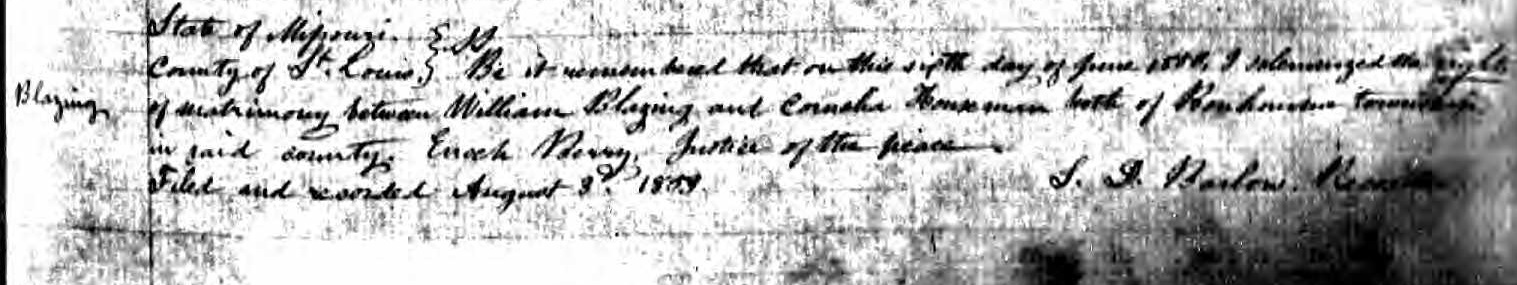 State of Missouri. } SS
County of St. Louis, } Be it remembered that on this sixth day of June 1858, I solemnized the rights
Blazing
of matrimony between William Blazing and Cornelia Houseman both of Bonhomme township
in said county. Enoch Berry, Justice of the peace
Filed and recorded August 3d 1858. S. D. Barlow. Recorder